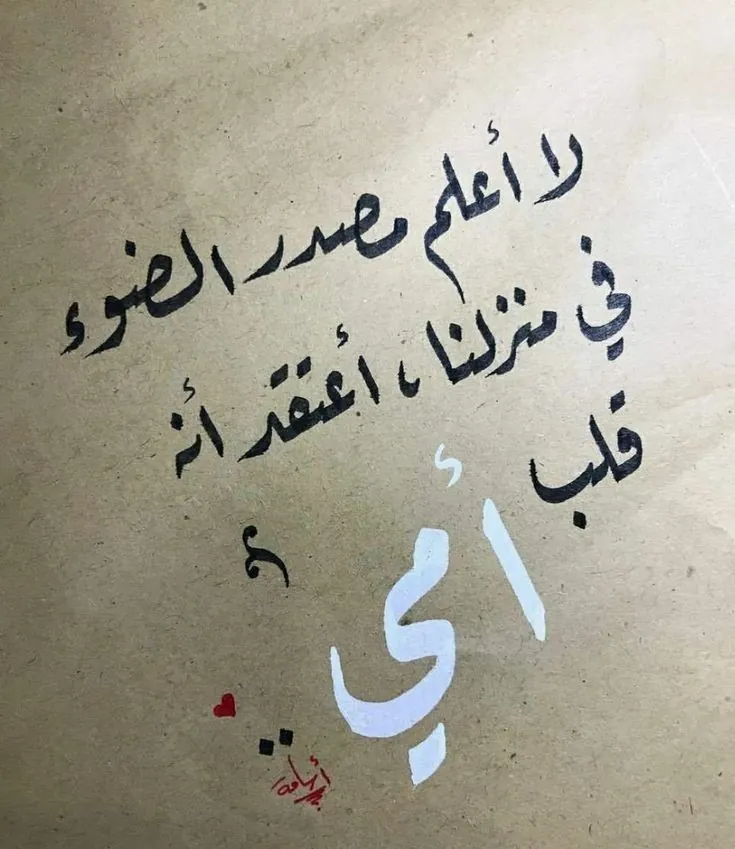 لا أعلم مصدر الضوء
في منزلنا، أعتقد أنه
قلب
أمي